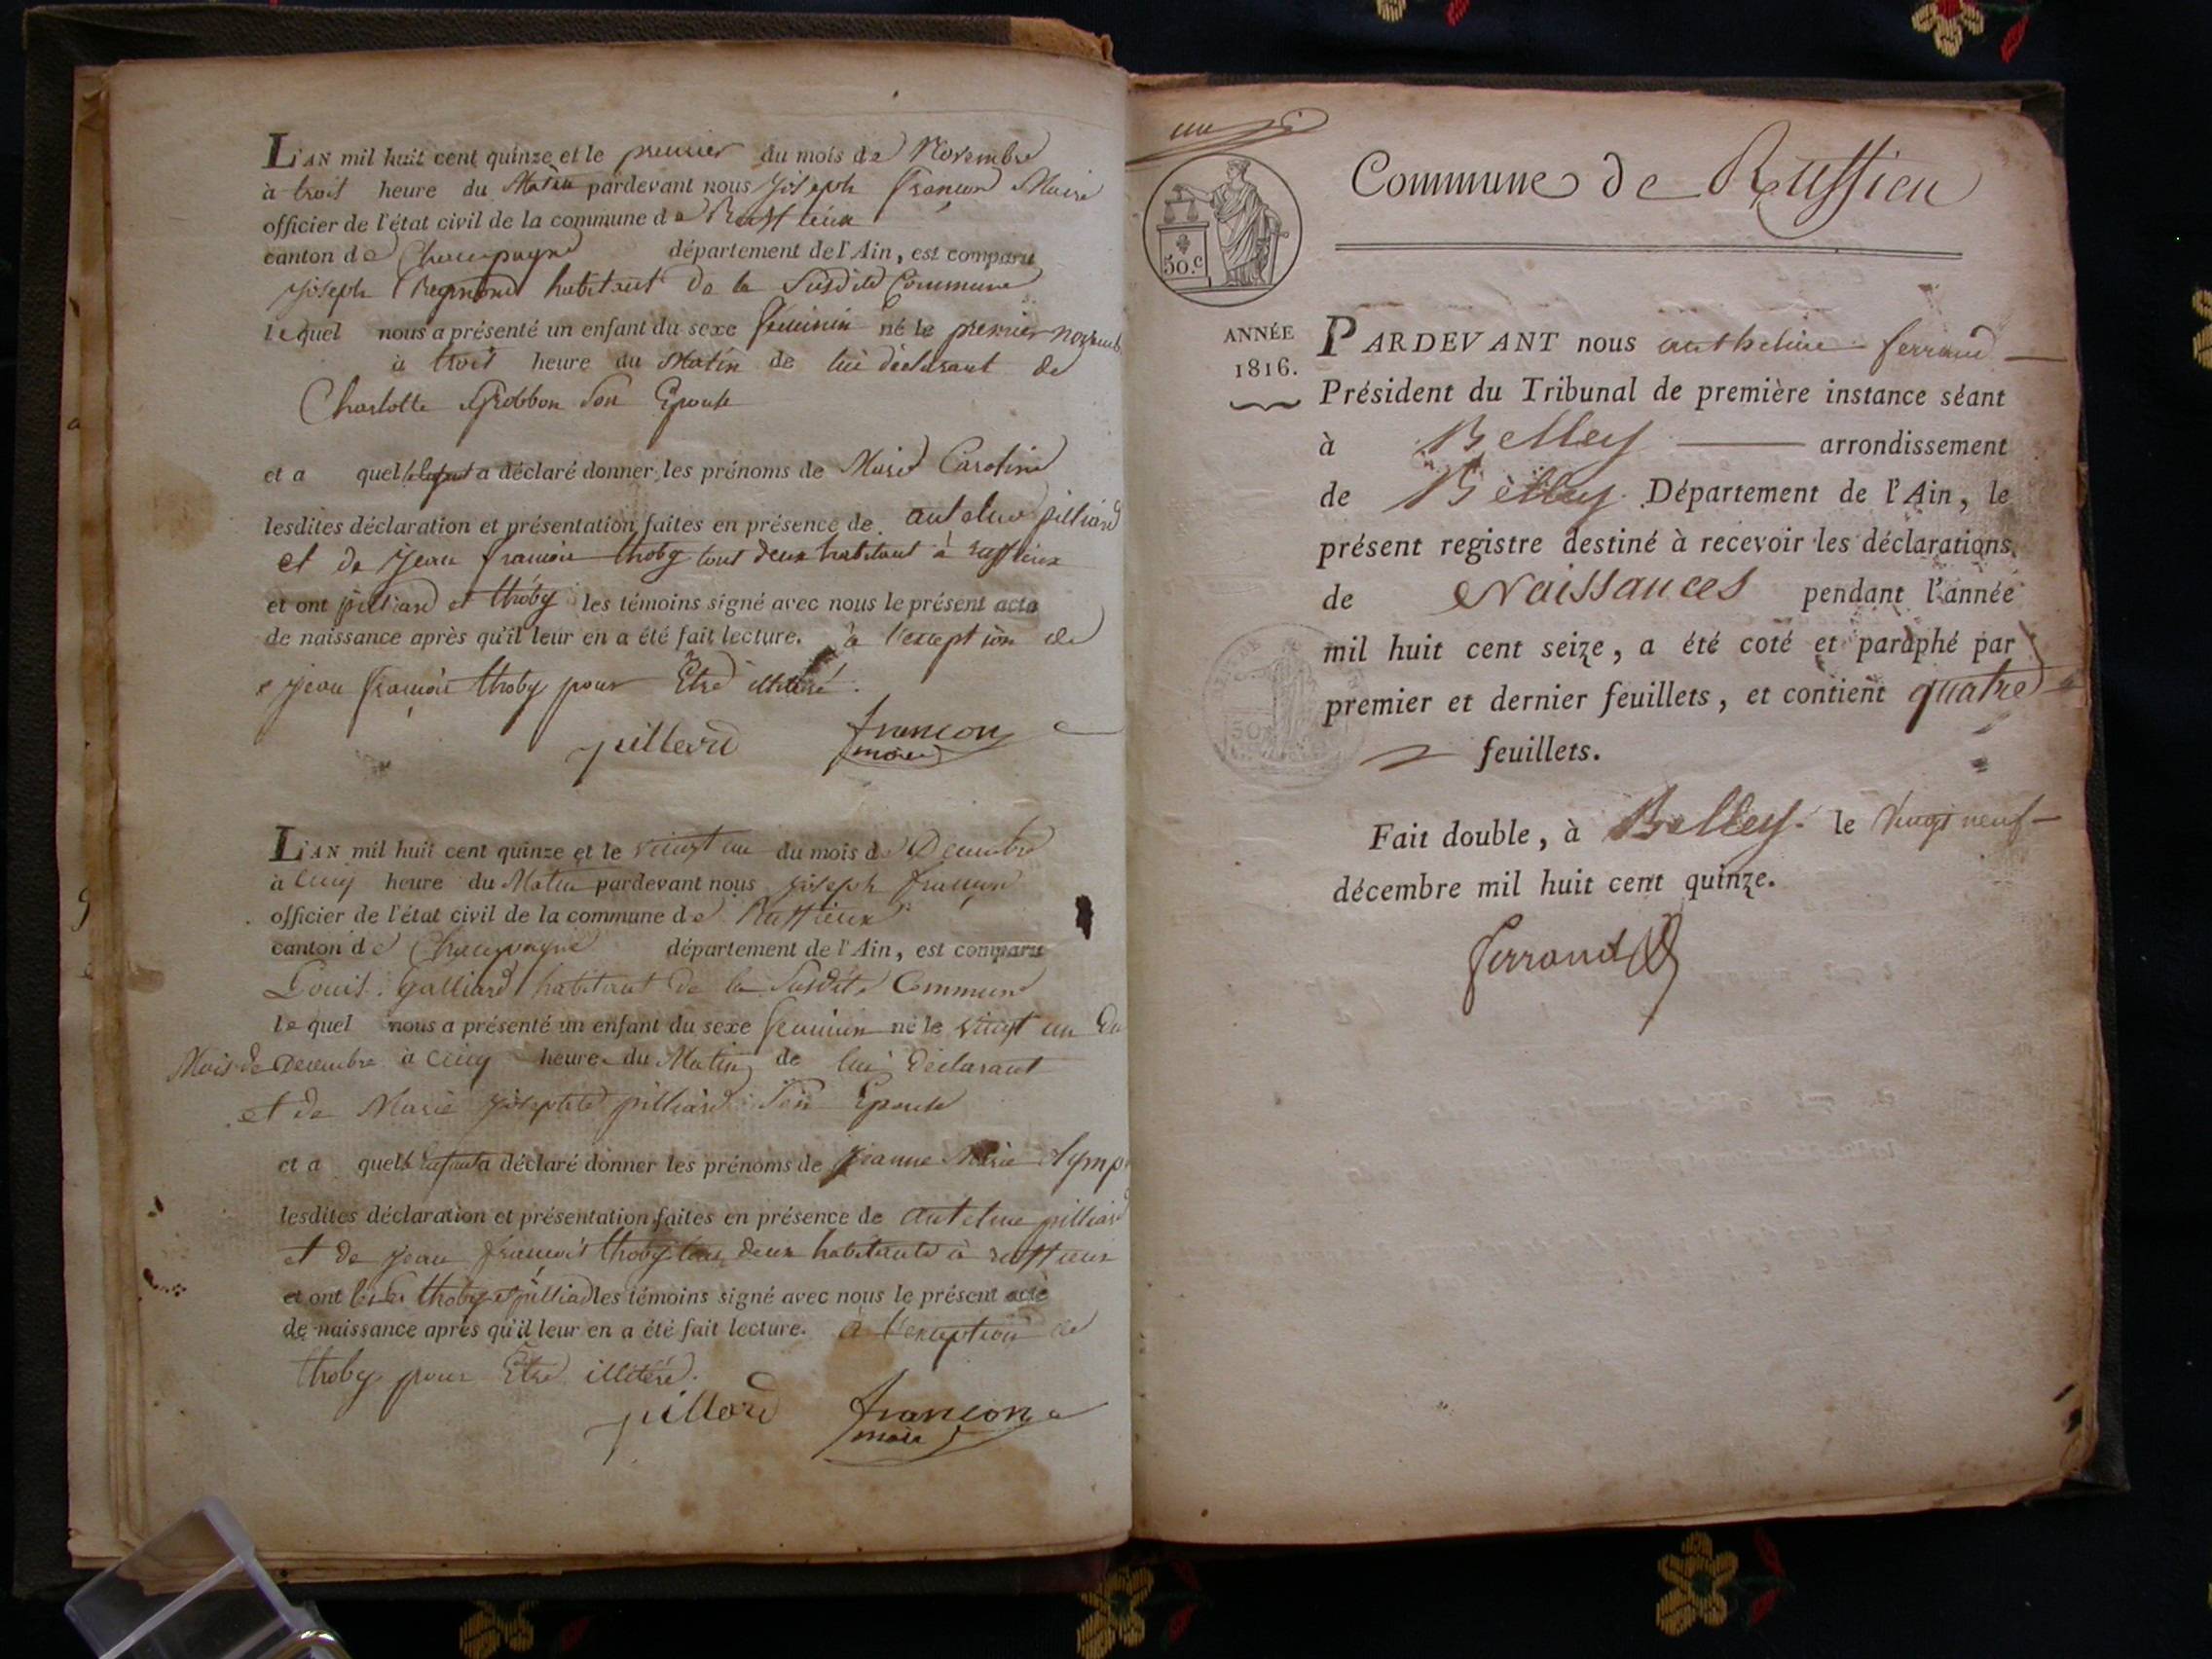 L'AN mil huit cent quinze et le premier du mois de Novembre
à troit heure du Matin pardevant nous Joseph françon Maire
officier de l'état civil de la commune de Ruffieux
canton de Champagne département de l'Ain, est comparu
Joseph Reymond habitant de la Susdite Commune
lequel nous a présenté un enfant du sexe féminin né le premier novemb
à troit heure du Matin de lui déclarant de
Charlotte Grobbon Son Epouse
et a quel a déclaré donner les prénoms de Marie Caroline
lesdites déclaration et présentation faites en présence de antelme pilliard
et de Jean françois thoby tout deux habitant à ruffieux
et ont pilliard et thoby les témoins signé avec nous le présent acte
de naissance après qu'il leur en a été fait lecture. à l'exception de
Jean françois thoby pour Etre illitéré.
pillard françon
maire
L'AN mil huit cent quinze et le vingt un du mois de Decembre
à cinq heure du Matin pardevant nous joseph françon
officier de l'état civil de la commune de Ruffieux
canton de Champagne département de l'Ain, est comparu
Louis Galliard habitant de la Susdite Commune
lequel nous a présenté un enfant du sexe feminin né le vingt un du
Mois de Decembre à cinq heure du Matin de lui déclarant
et de Marie josephte pilliard Son Epouse
et a quel a déclaré donner les prénoms de Jeanne Marie Symp
lesdites déclaration et présentation faites en présence de antelme pilliard
et de jean françois thoby tous deux habitants à ruffieux
et ont thoby et pilliard les témoins signé avec nous le présent acte
de naissance après qu'il leur en a été fait lecture. à l'exception de
thoby pour Etre illitéré.
pillard françon
maire
un
Commune de Ruffieu
50.c
ANNÉE
1816.
PARDEVANT nous anthelme ferrand
Président du Tribunal de première instance séant
à Belley arrondissement
de Belley Département de l'Ain, le
présent registre destiné à recevoir les déclarations
de Naissances pendant l'année
mil huit cent seize, a été coté et paraphé par
premier et dernier feuillets, et contient quatre
feuillets.
Fait double, à Belley le vingt neuf
décembre mil huit cent quinze.
ferrand